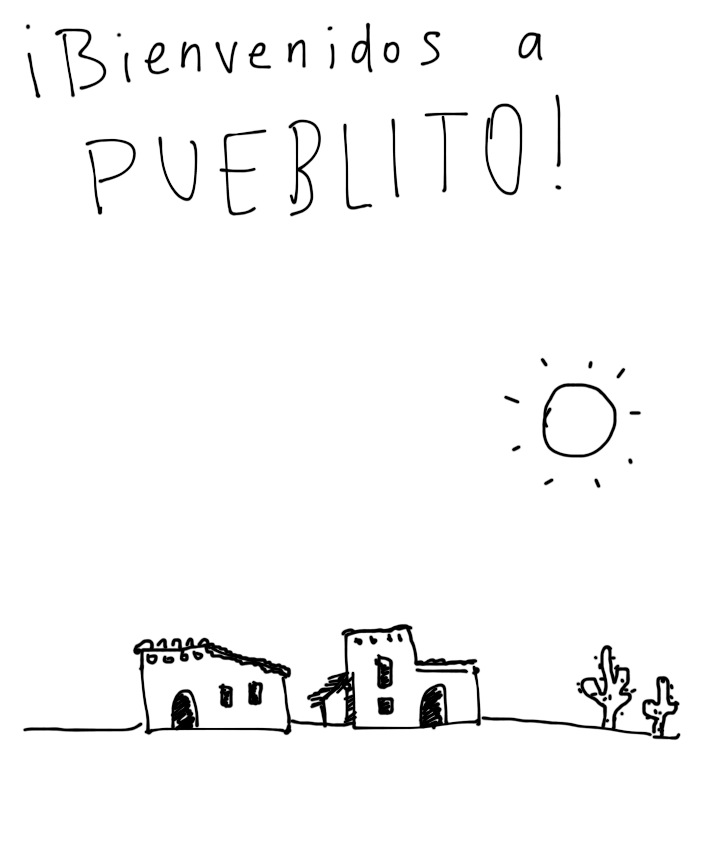 ¡Bienvenidos a
PUEBLITO!